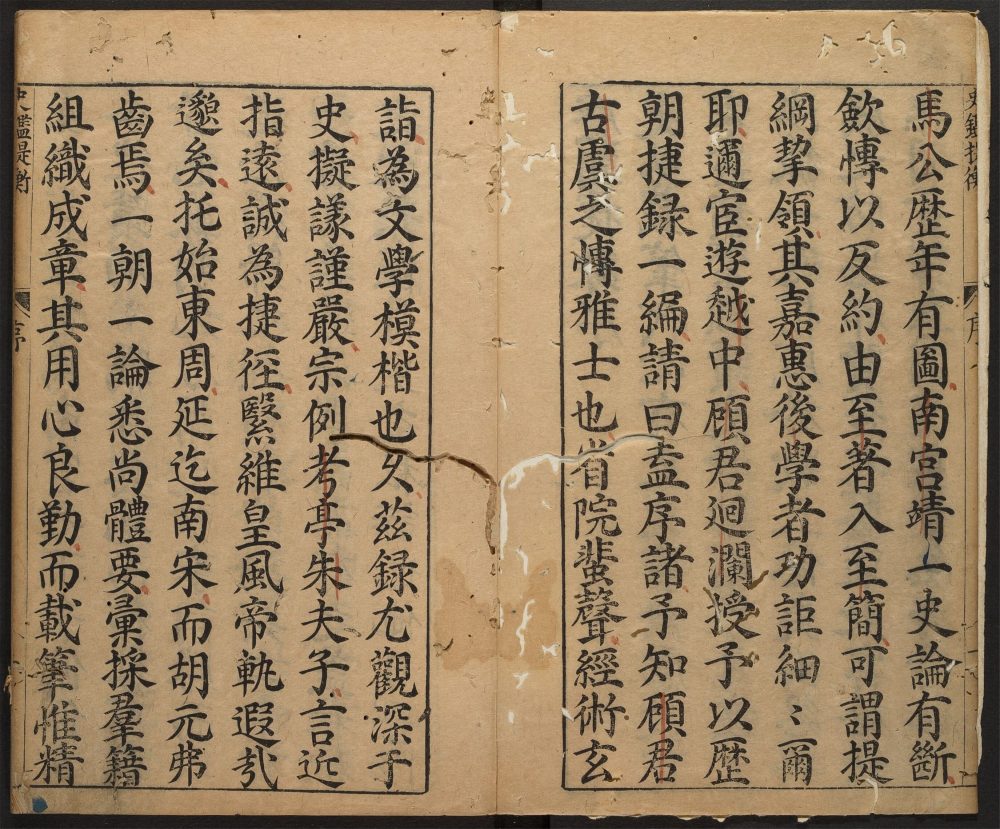 馬公歴年有圖南宮靖一史論有斷
歛慱以反約由至著入至簡可謂提
綱挈領其嘉惠後學者功詎細〻爾
耶邇宦遊越中顧君廻瀾授予以歴
朝捷録一編請曰盍序諸予知顧君
古虞之慱雅士也省院蜚聲經術玄
詣為文學模楷也久茲録尤觀深于
史擬議謹嚴宗例考亭朱夫子言近
指遠誠為捷徑繄維皇風帝軌遐㢤
邈矣托始東周延迄南宋而胡元弗
齒焉一朝一論悉尚體要彙採羣籍
組織成章其用心良勤而載筆惟精
史鑑提衡
序